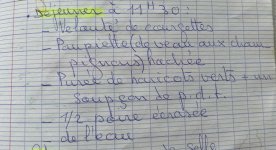 . Déjeuner à 11H30 :
- Velouté de courgettes
- Paupiette (de veau aux cham
pignons) hachée
- Purée de haricots verts + un
soupçon de p.d.t.
- 1/2 poire écrasée
- de l'eau
salle